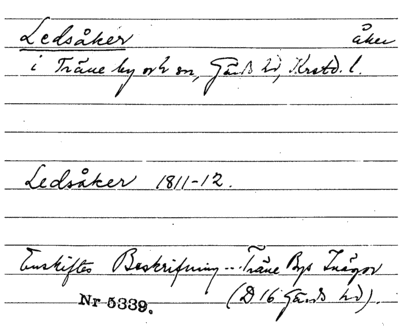 Ledsåker åker
i Träne by och sn, Gärds hd, Krstd. l.
Ledsåker 1811-12.
Enskiftes Beskrifning --- Träne Bys Inägor
Nr 5339. (D 16 Gärds hd).